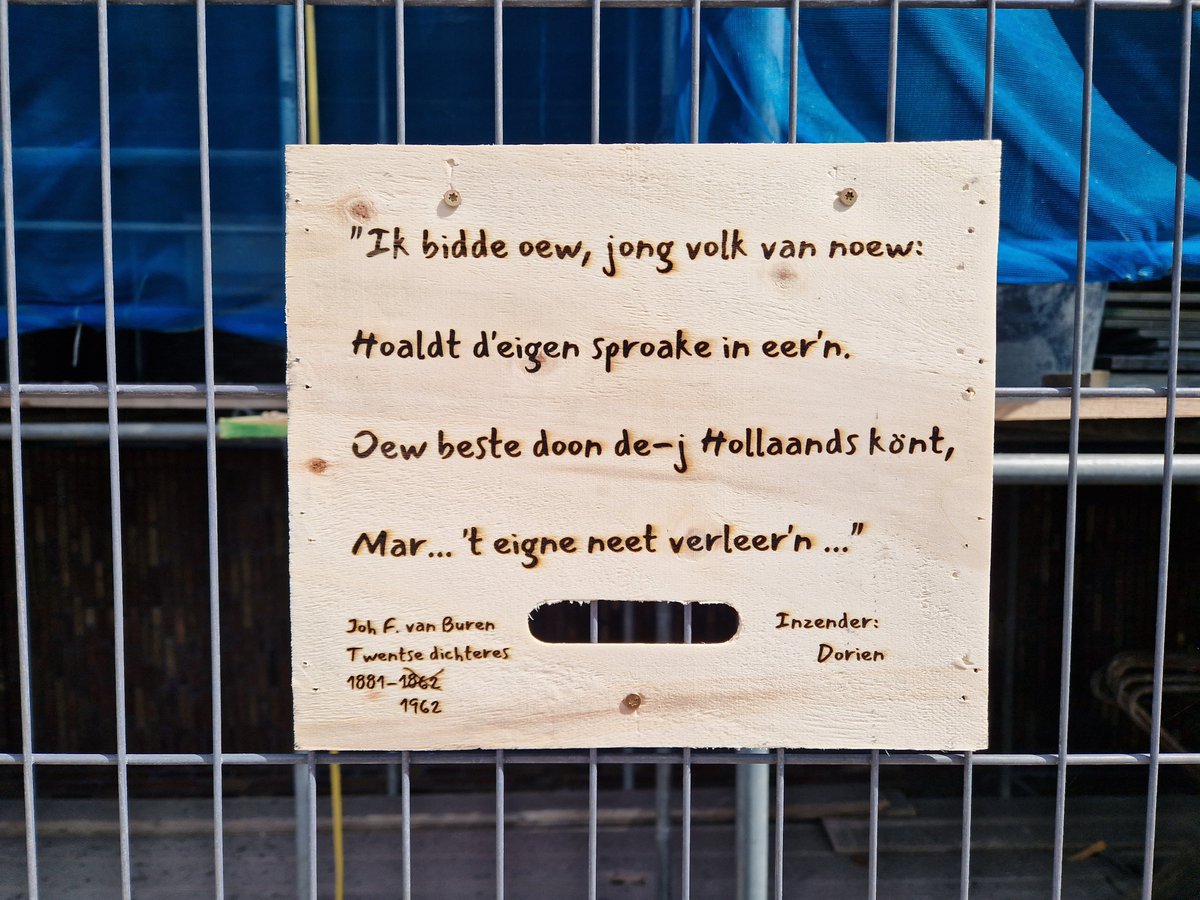 "Ik bidde oew, jong volk van noew:
Hoaldt d'eigen sproake in eer'n.
Oew beste doon de-j Hollaands könt,
Mar... 't eigne neet verleer'n ..."
Joh F. van Buren
Twentse dichteres
1881-1862
1962
Inzender:
Dorien